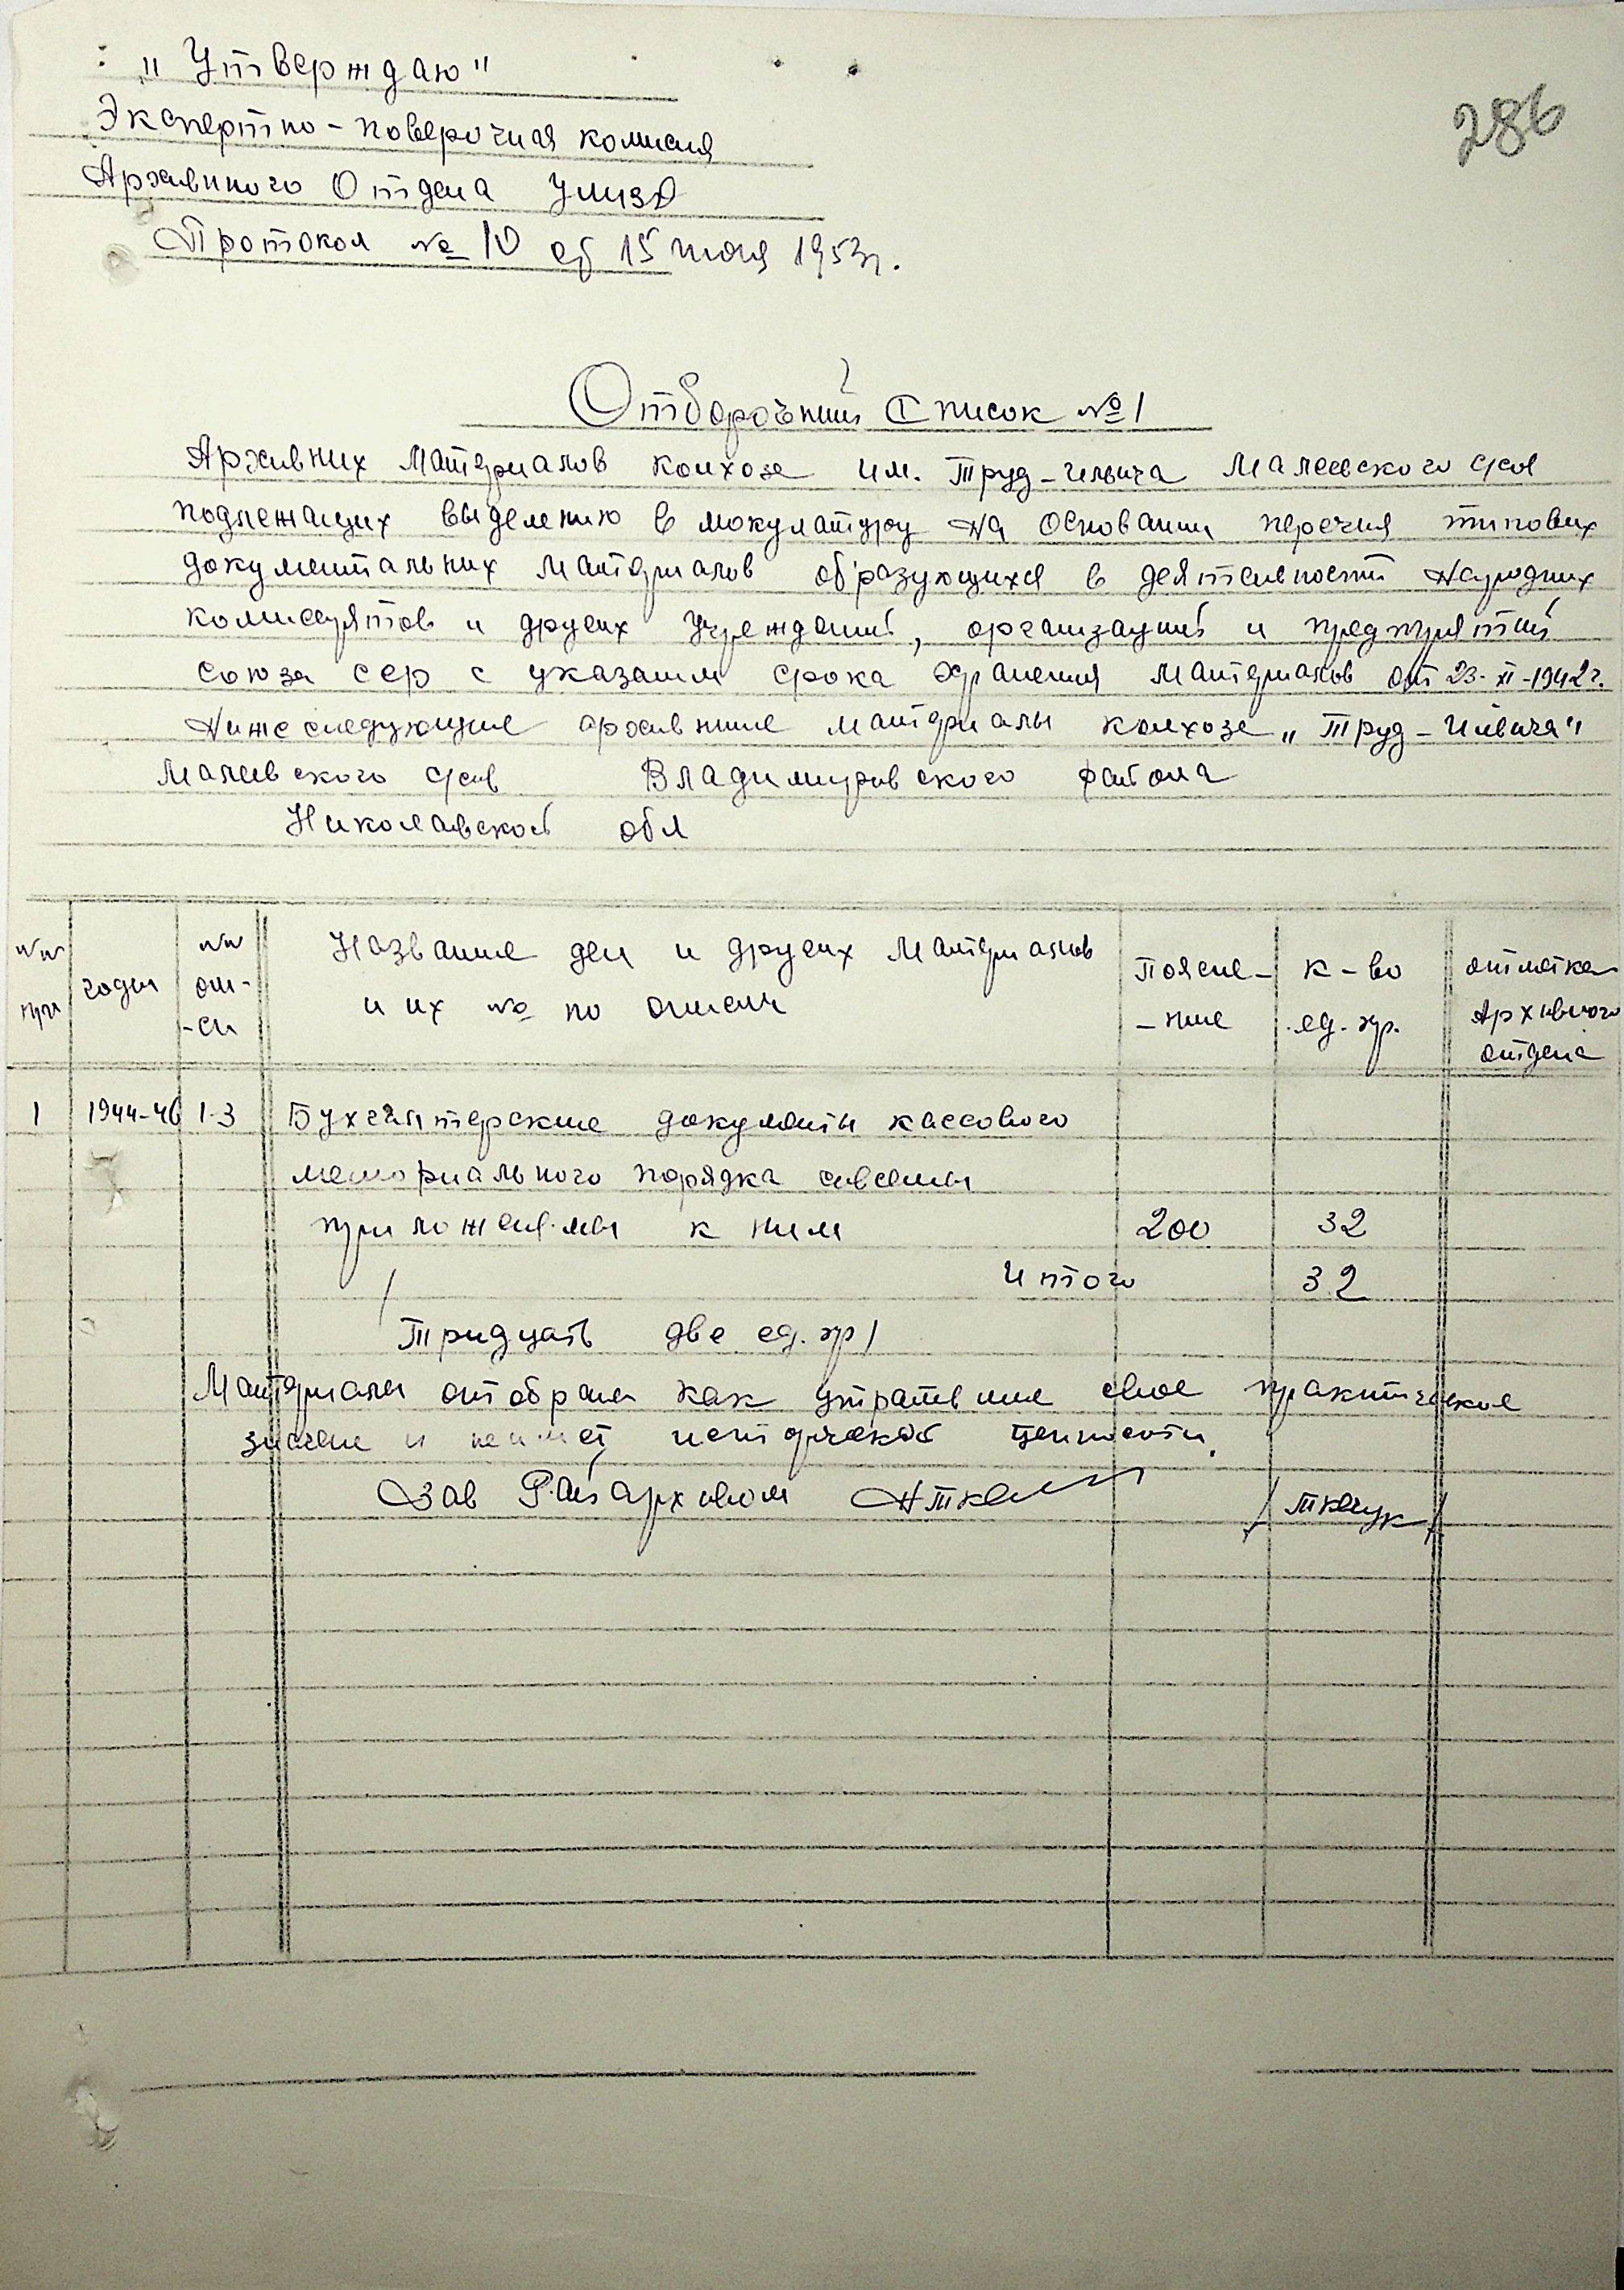 286
„Утверждаю"
Экспертно-поверочная комисия
Архивного Отдела УМВД
Протокол № 10 от 15 июля 1953г.
Отборочний Список № 1
Архивних материалов колхоза им. Труд-Ильича Малеевского с/сов
подлежащих выделению в мокулатуру на основании перечня типових
документальних материалов образующихся в деятельности Народних
комиссариятов и других учреждений, организаций и предприятий
Союза ССР с указанием срока хранения материалов от 23-XI-1942г.
Нижеследующие архивние материалы колхоза „Труд-Ильича"
Малеевского с/сов Владимировского района
Николаевской обл
№№ п/п
годы
№№ опи-си
Название дел и других материалов и их № по описи
Поясне-ние
к-во ед. хр.
отметка Архивного отдела
1 1944-46 1-3 Бухгалтерские документы кассового
мемориального порядка совсеми
приложениями к ним 200 32
Итого 32
/Тридцать две ед. хр/
Материалы отобраны как утратившие свое практическое
значение и не имеет исторической ценности.
Зав Райархивом /Ткачук/